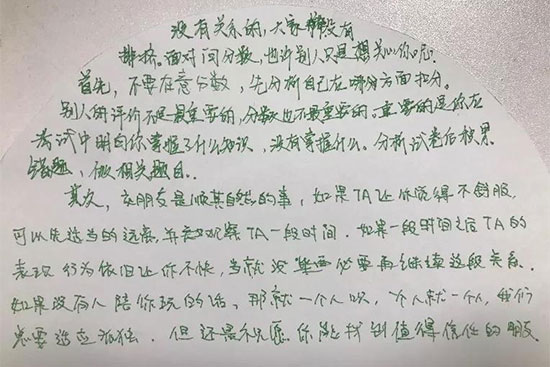 没有关系的，大家都没有
排挤。面对问分数，也许别人只是想关心你呢
首先，不要在意分数，先分析自己在哪部分方面扣分。
别人的评价不是最重要的，分数也不最重要的。重要的是你在
考试中明白你掌握了什么知识，没有掌握什么。分析试卷后
错题，做相关题目。
其次，交朋友是顺其自然的事，如果TA让你觉得不舒服，
可以先适当的远离，并观察TA一段时间。如果一段时间之后TA的
表现行为依旧让你不快，当就没必要再继续这段关系。
如果没有人陪你玩的话，那就一个人呗，个人就一个人，我们
总要适应孤独。但还是祝愿你能找到值得信任的朋友